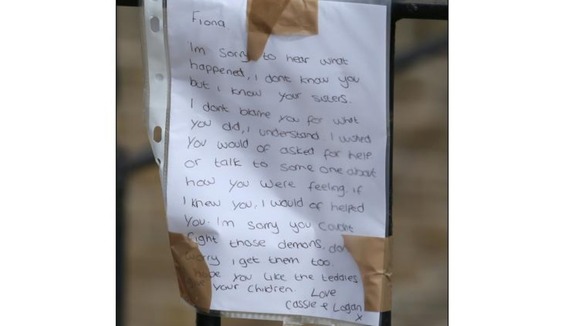 Fiona
Im sorry to hear what
happened, i dont know you
but i know your sisters.
I dont blame you for what
you did, i understand. I wished
you would of asked for help
or talk to some one about
how you were feeling, if
I knew you, I would of helped
you. I'm sorry you couldnt
fight those demons,
i get them too.
you like the teddies
your children. Love
Cassie + Logan
x